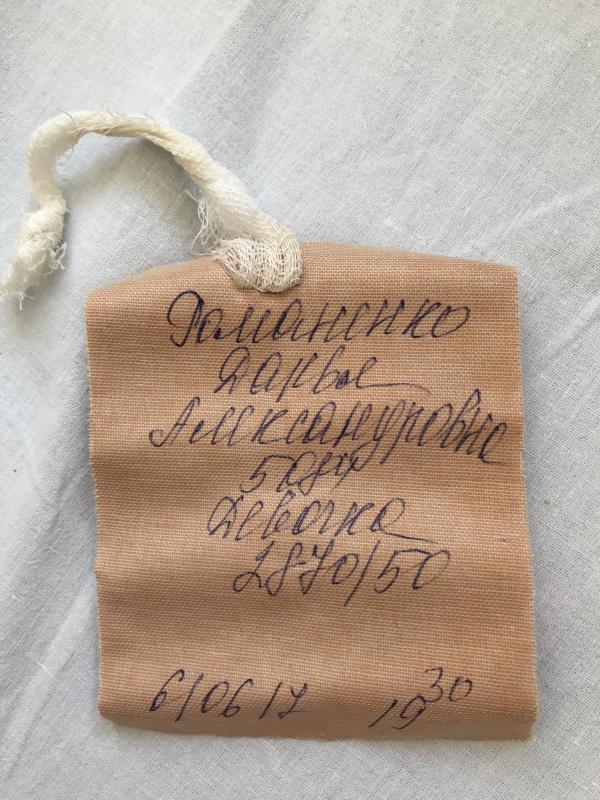 Романенко
Дарья
Александровна
Девочка
2870/50
6/06/17 19 30